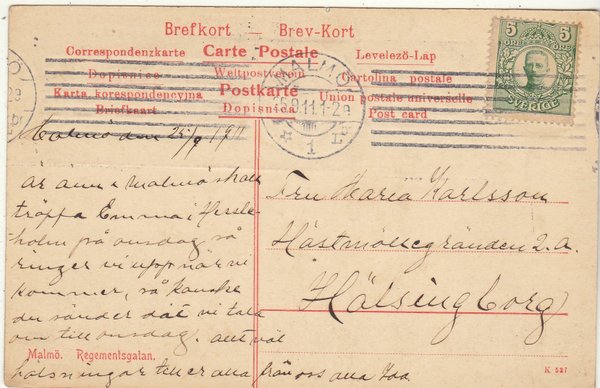 Brefkort — Brev-Kort
Correspondenzkarte Carte Postale Levelezö-Lap
Dopisnice Weltpostverein Cartolina postale
Karta korespondencyjna Postkarte Union postale universelle
Briefkaart Dopisnica Post card
5 5
ÖRE ÖRE
SVERIGE
MALMÖ
1
Malmö den 25/9 1911
är ännu i Malmö skall
träffa Emma i Hessle-
holm på onsdag så
ringer vi upp när vi
kommer, så kanske
du sänder dit vi tala
om till onsdag. allt väl
hälsningar till er alla från oss alla
Fru Maria Karlsson
Hästmöllegränden 2.a.
Hälsingborg
Malmö. Regementsgatan.
K 527